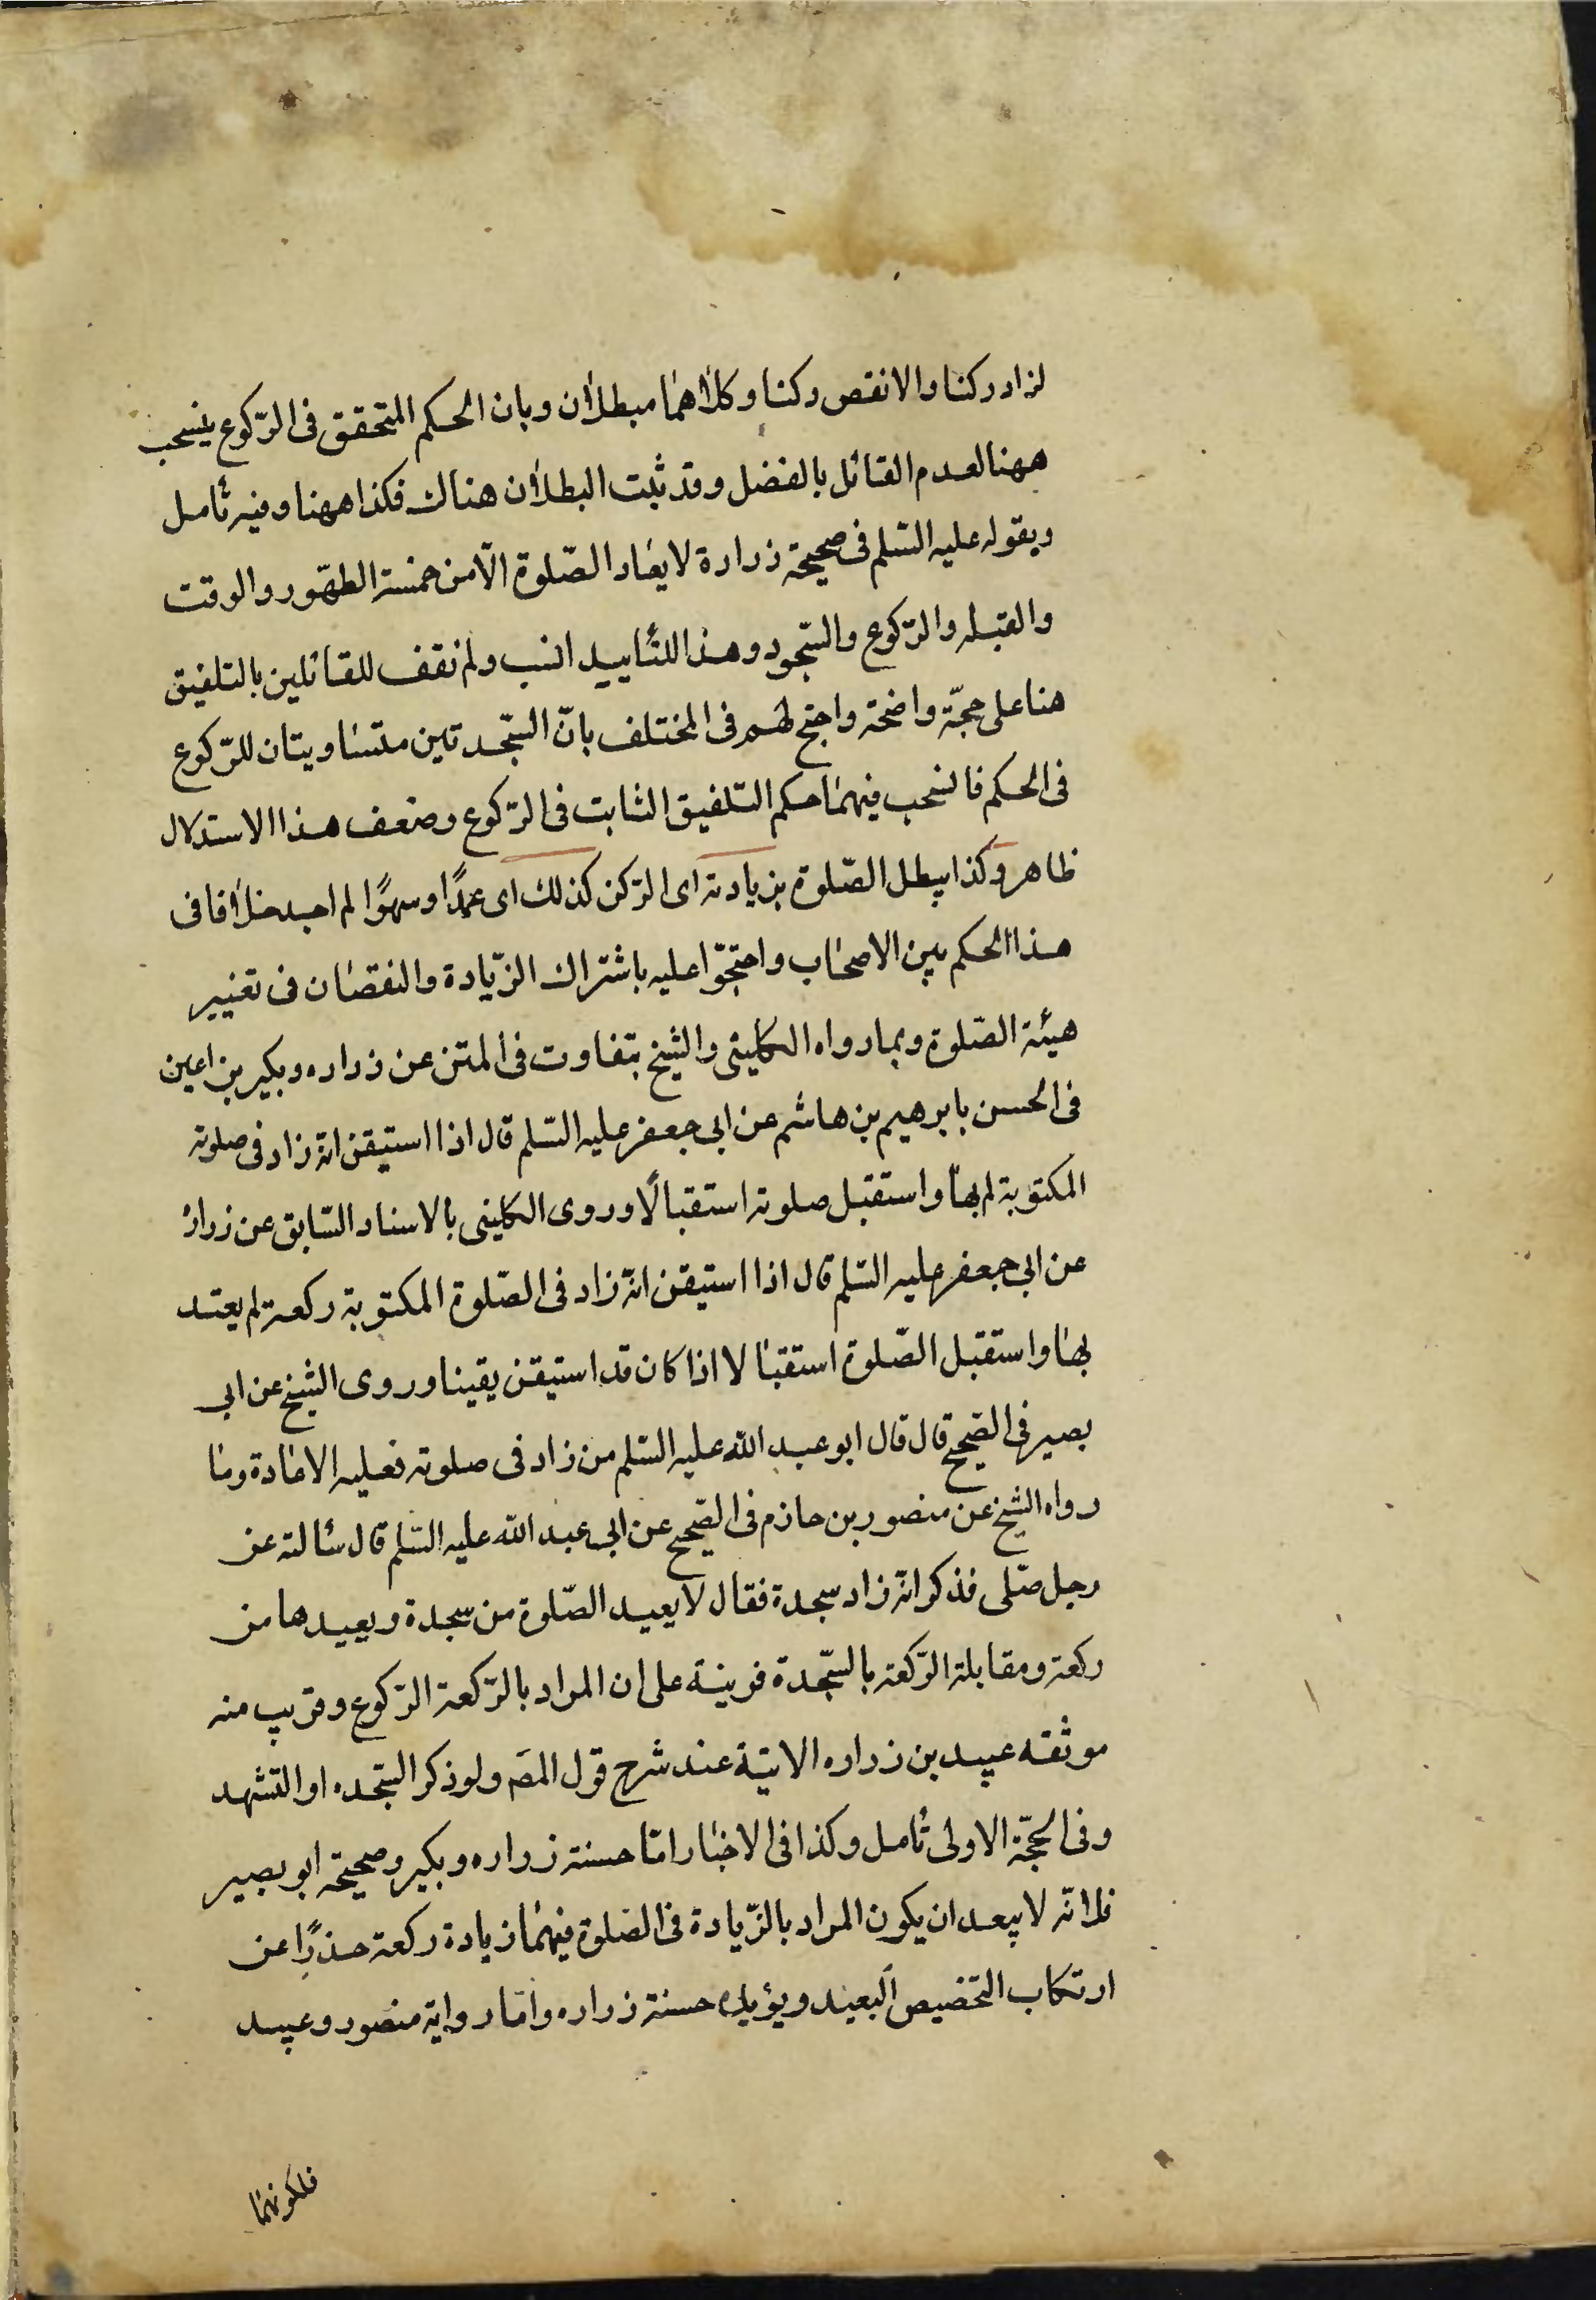 لزاد ركنا والا نقص ركنا وكلاهما مبطلان وبان الحكم المتحقق فى الرّكوع ينسحب
ههنا لعدم القائل بالفضل وقد ثبت البطلان هناك فكذا ههنا وفيه تأمل
وبقوله عليه السّلم فى صحيحة زرارة لا يعاد الصّلوة الّا من خمسة الطهور والوقت
والقبله والرّكوع والسّجود وهذا للتأييد انسب ولم نقف للقائلين بالتلفيق
هنا على حجّة واضحة واحتج لهم فى المختلف بانّ السّجدتين متساويتان للرّكوع
فى الحكم فانسحب فيهما حكم التلفيق الثابت فى الرّكوع وضعف هذا الاستدلال
ظاهر وكذا يبطل الصّلوة بزيادته اى الرّكن كذلك اى عمدًا وسهوًا لم اجد خلافا فى
هذا الحكم بين الاصحاب واحتجّوا عليه باشتراك الزّيادة والنقصان فى تغيير
هيئة الصّلوة وبما رواه الكلينى والشيخ بتفاوت فى المتن عن زراره وبكير بن اعين
فى الحسن بابرهيم بن هاشم عن ابى جعفر عليه السّلم قال اذا استيقن انّه زاد فى صلوته
المكتوبة لم بها واستقبل صلوته استقبالًا وروى الكلينى بالاسناد السّابق عن زرارة
عن ابى جعفر عليه السّلم قال اذا استيقن انّه زاد فى الصّلوة المكتوبة ركعة لم يعتد
بها واستقبل الصّلوة استقبالا اذا كان قد استيقن يقينا وروى الشيخ عن ابى
بصير فى الصّحيح قال قال ابو عبد الله عليه السّلم من زاد فى صلوته فعليه الاعادة وما
رواه الشيخ عن منصور بن حازم فى الصّحيح عن ابى عبد الله عليه السّلم قال سألته عن
رجل صلّى فذكر انّه زاد سجدة فقال لا يعيد الصّلوة من سجدة ويعيدها من
ركعة ومقابلة الرّكعة بالسّجدة قرينة على ان المراد بالرّكعة الرّكوع وقريب منه
موثقه عبيد بن زراره الاتية عند شرح قول المصَ ولو ذكر السّجده او التشهد
وفى الحجّة الاولى تأمل وكذا فى الاخبار امّا حسنة زراره وبكير وصحيحة ابو بصير
فلانّه لا يبعد ان يكون المراد بالزّيادة فى الصّلوة فيهما زيادة ركعة حذرًا عن
ارتكاب التخصيص البعيد ويؤيده حسنة زراره وامّا رواية منصور وعبيد
فلكونهما